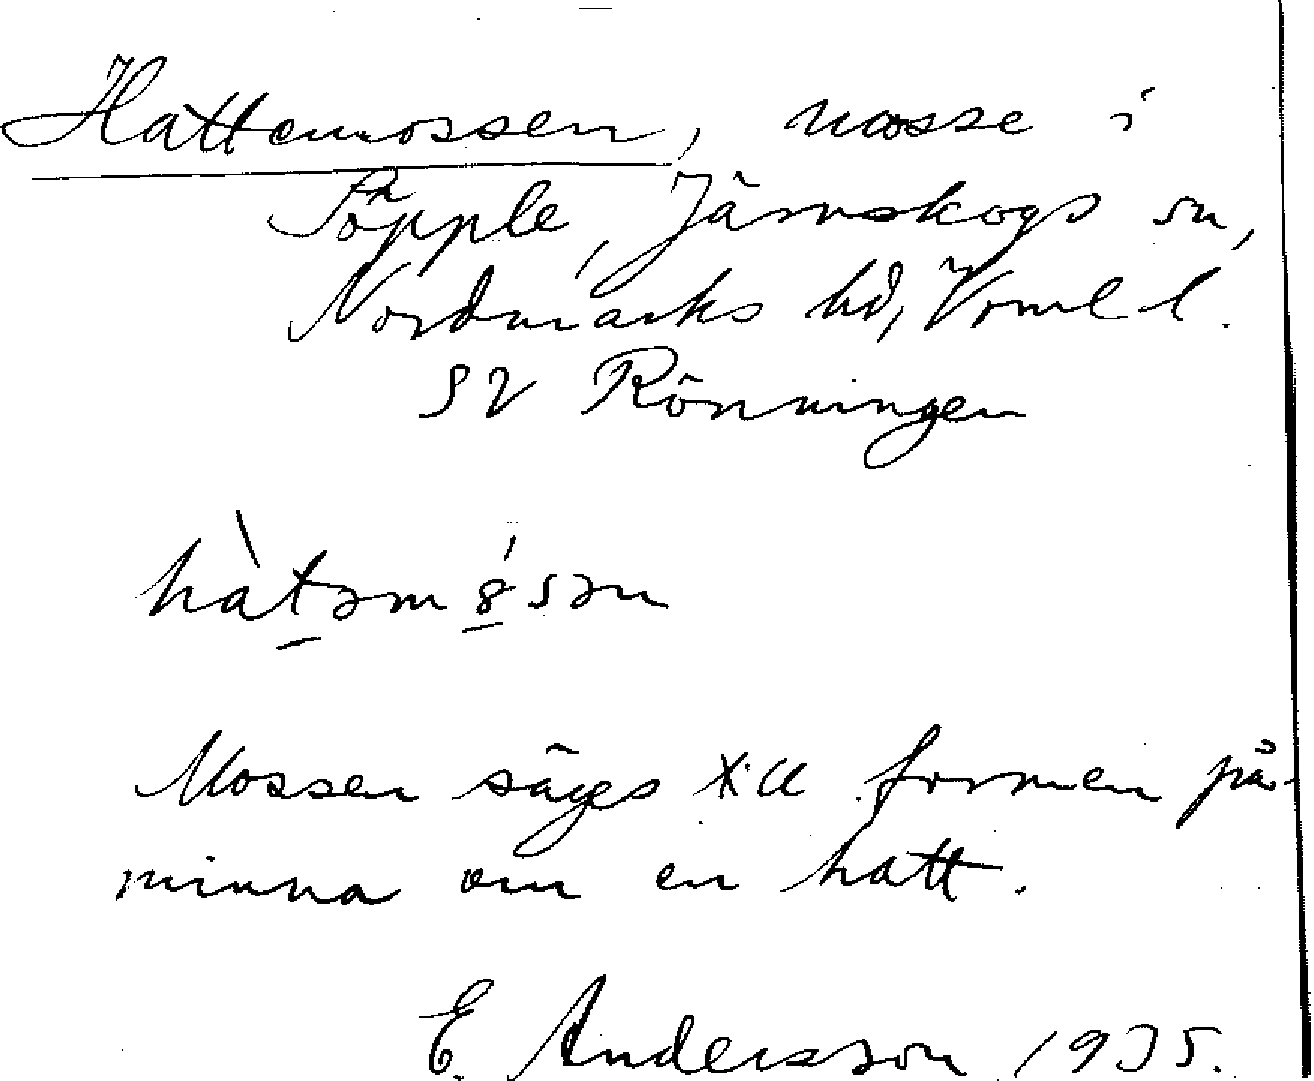 Hattemossen, mosse i
Söpple, Järnskogs sn,
Nordmarks hd, Vrml l.
SV Rönningen
hàtəmo̱sən
Mossen säges till formen på-
minna om en hatt.
E. Andersson 1935.